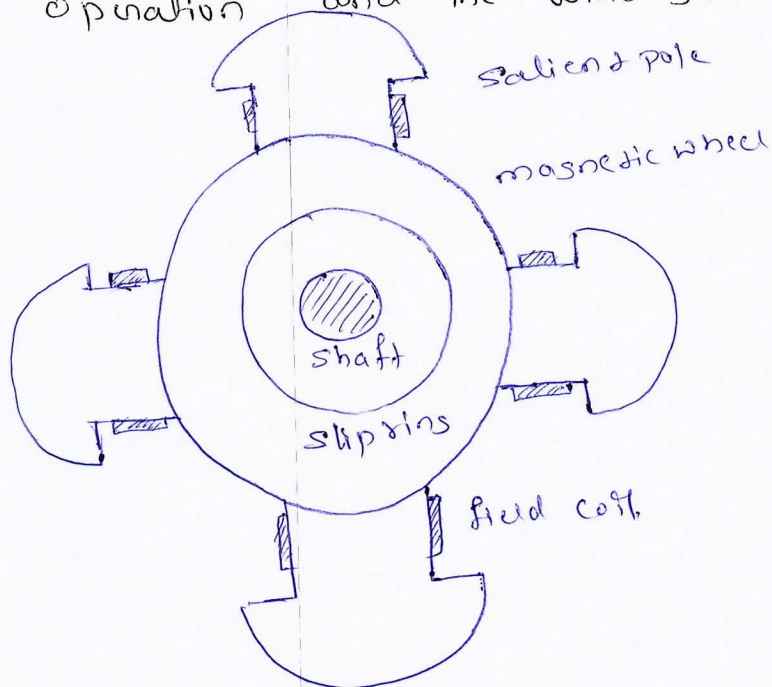 Operation and the
Salient pole
magnetic wheel
shaft
slip rings
field coil